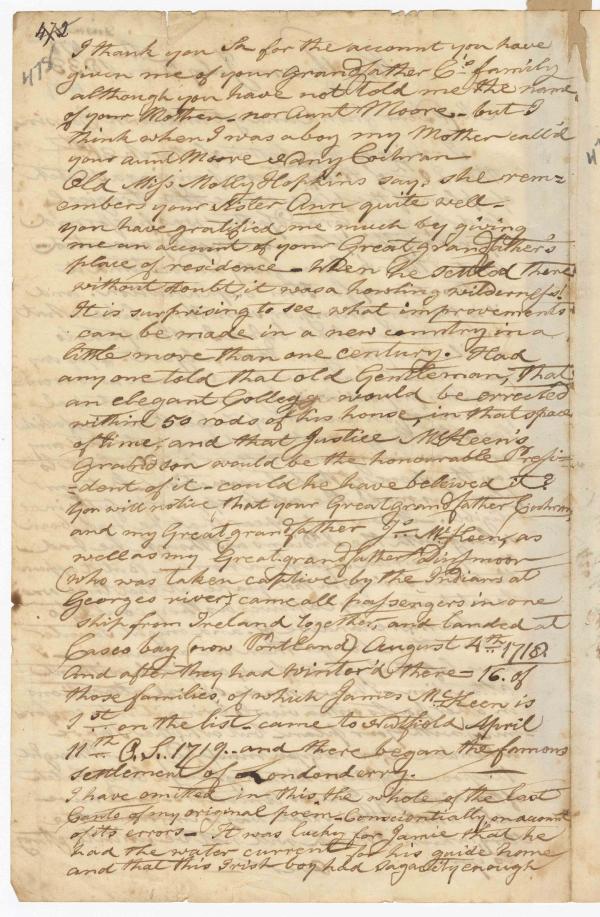 472
478
I thank you Sir for the account you have
given me of your Grandfather Cs. family
although you have not told me the name
of your Mother - nor Aunt Moore - but I
think when I was a boy my Mother call'd
your aunt Moore Jenny Cochran
Old Miss Molly Hopkins says she rem=
embers your Sister Ann quite well -
you have gratified me much by giving
me an account of your Great grandfather's
place of residence - When he settled there
without doubt, it was a howling wilderness!
It is surprising to see what improvements
can be made in a new country in a
little more than one century. Had
any one told that old Gentleman, that
an elegant College would be errected
within 50 rods of his house, in that space
of time, and that Justice McKeen's
Grandson would be the honourable Presi=
=dent of it - could he have believed it?
You will notice that your Great grandfather Cochran,
and my Great grandfather Js. McKeen, as
well as my Great grandfather Dinsmoor
(who was taken captive by the Indians at
Georges river) came all passengers in one
ship from Ireland together, and landed at
Casco bay (now Portland) August 4th 1718.
And after they had Winter'd there - 16. of
those families, of which James McKeen is
1st on the list - came to Nutfield April
11th O.S. 1719. and there began the famous
settlement of Londonderry.
I have omitted in this the whole of the last
Canto of my original poem - Conscientially on account
of its errors - It was lucky for Jamie that he
had the water current for his guide home
and that this Irish boy had sagacity enough